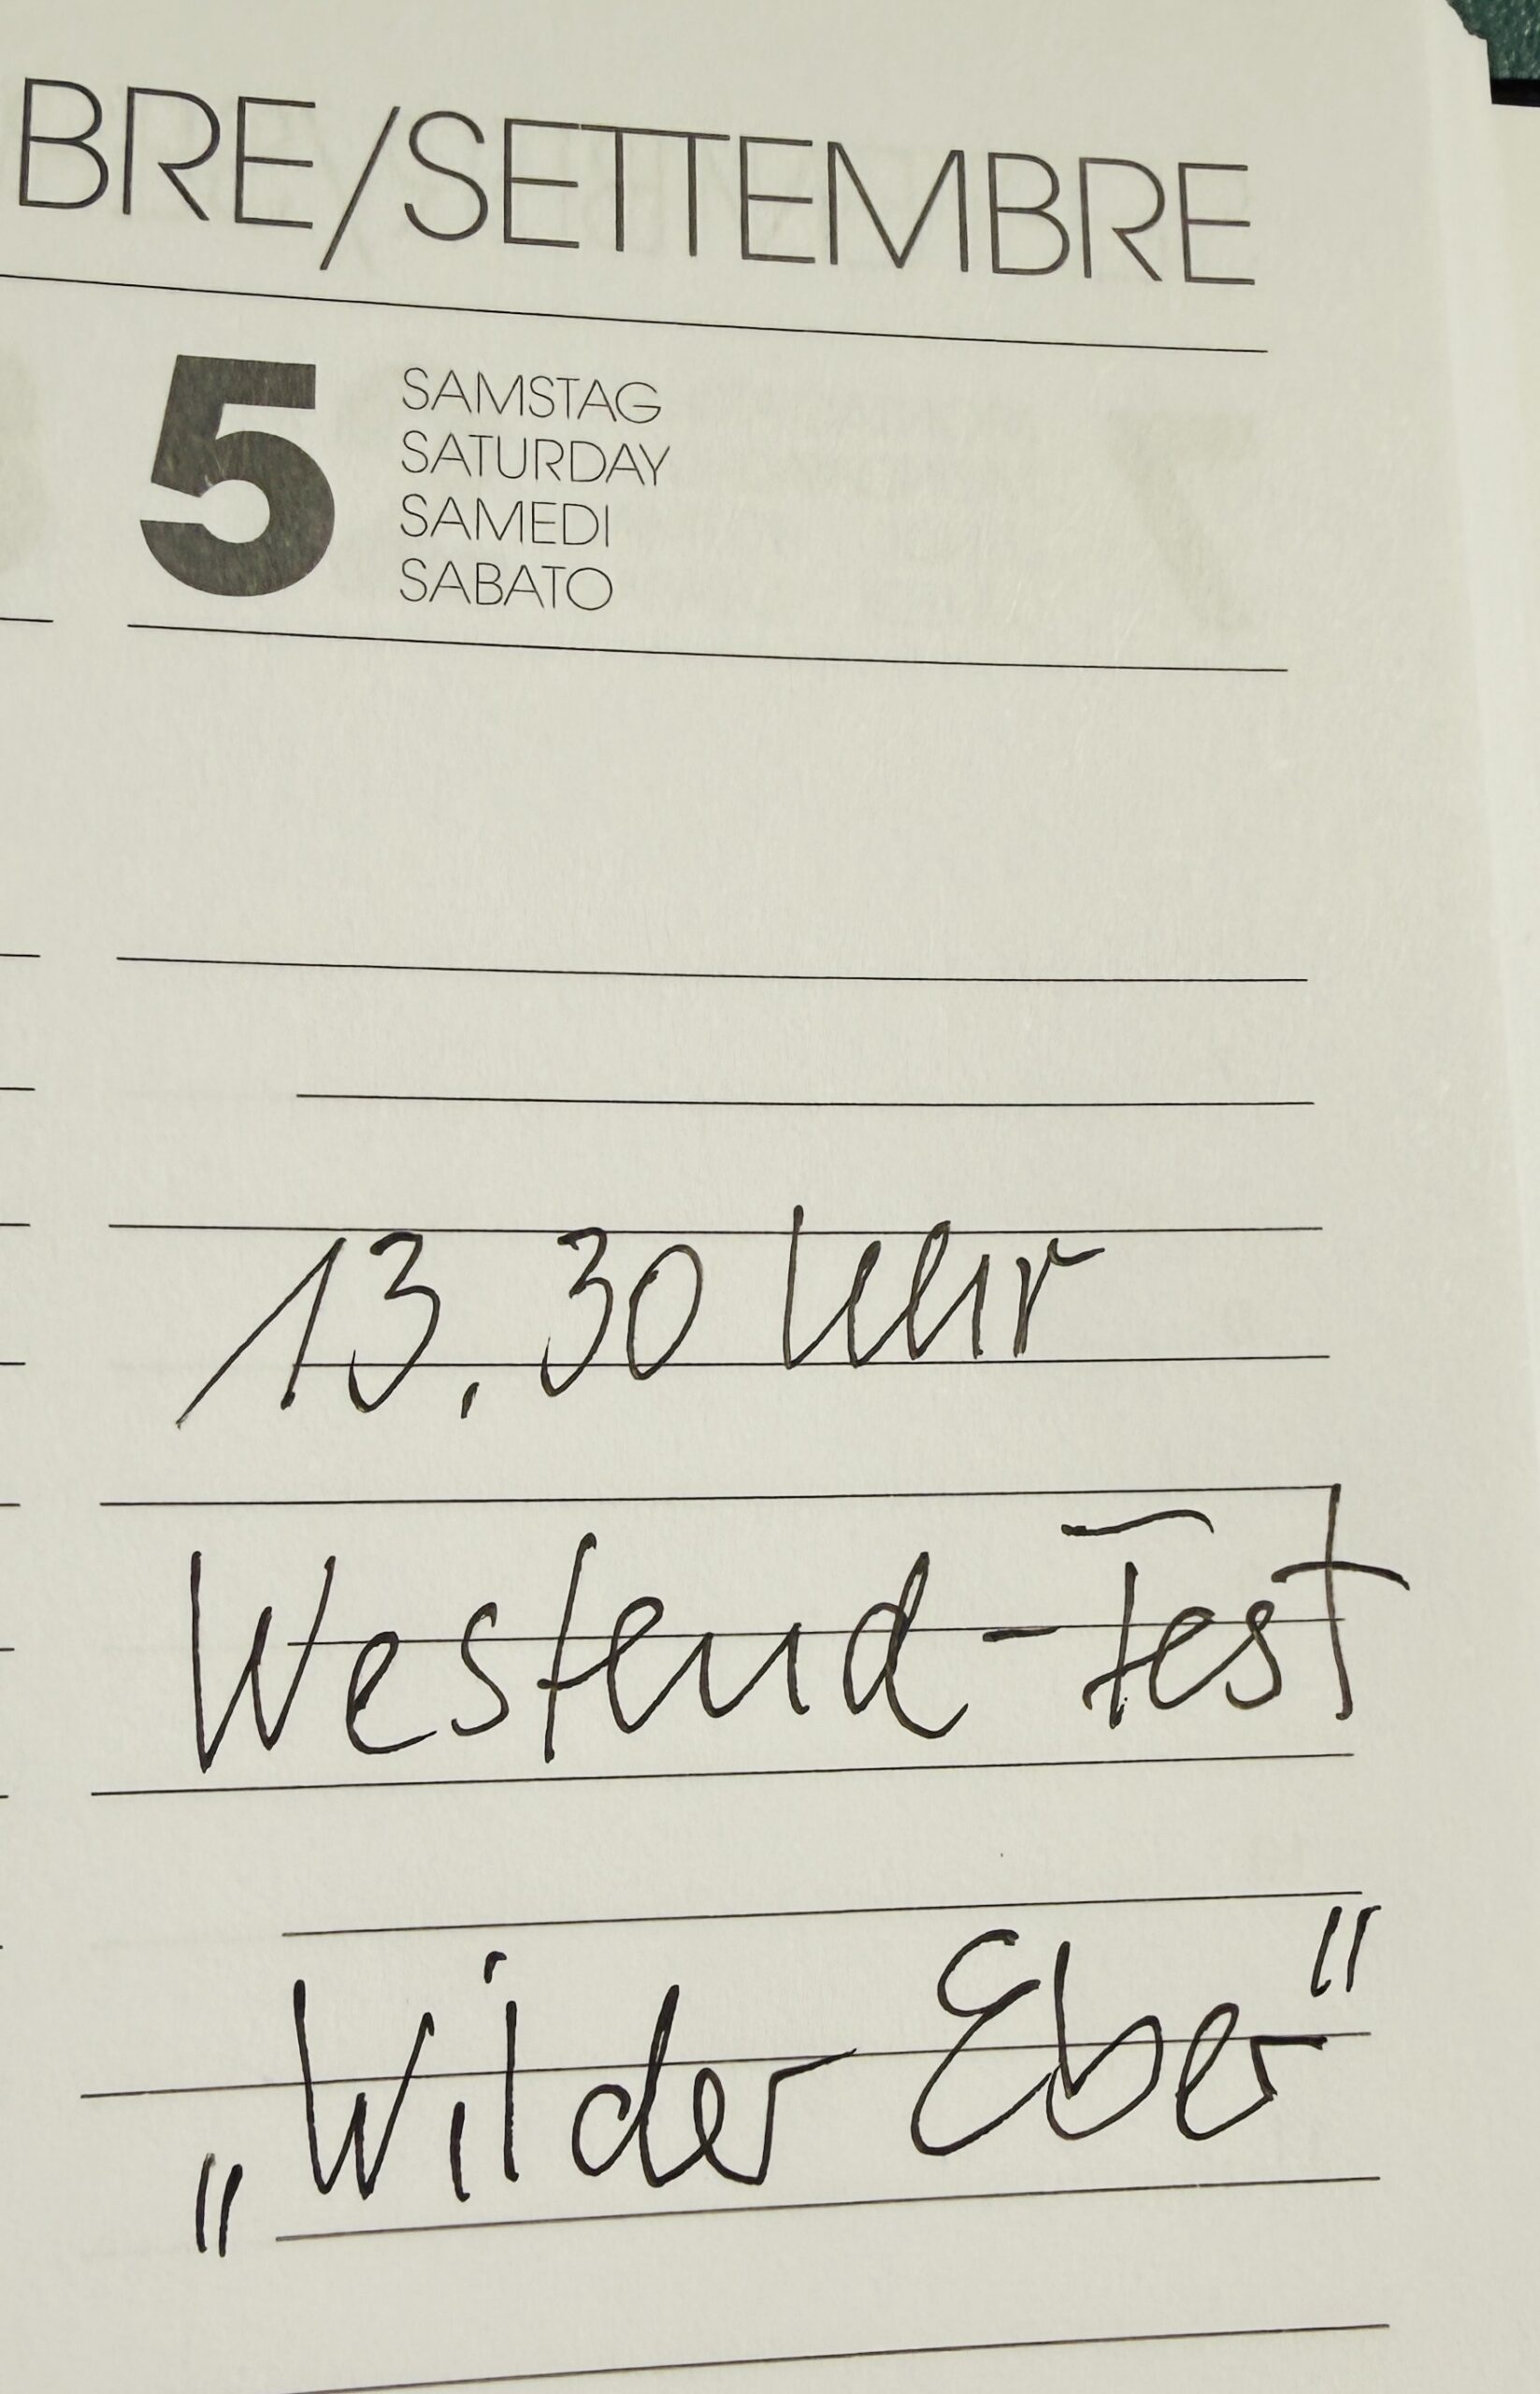 BRE/SETTEMBRE
5
SAMSTAG
SATURDAY
SAMEDI
SABATO
13.30 Uhr
Westend-Fest
„Wilder Eber“